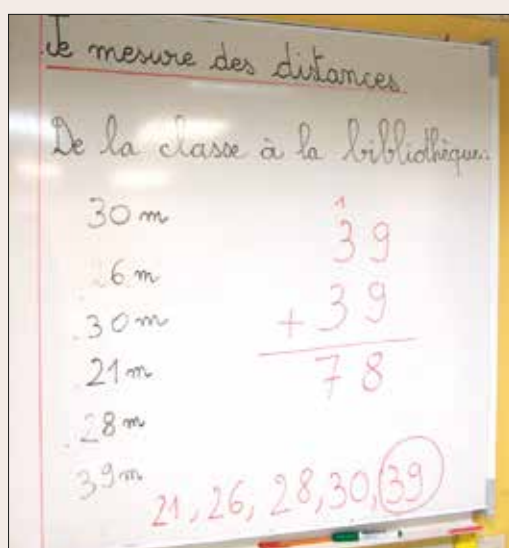 Je mesure des distances.
De la classe à la bibliothèque:
30 m
26 m
30 m
21 m
28 m
39 m
1
39
+ 39
78
21, 26, 28, 30, 39